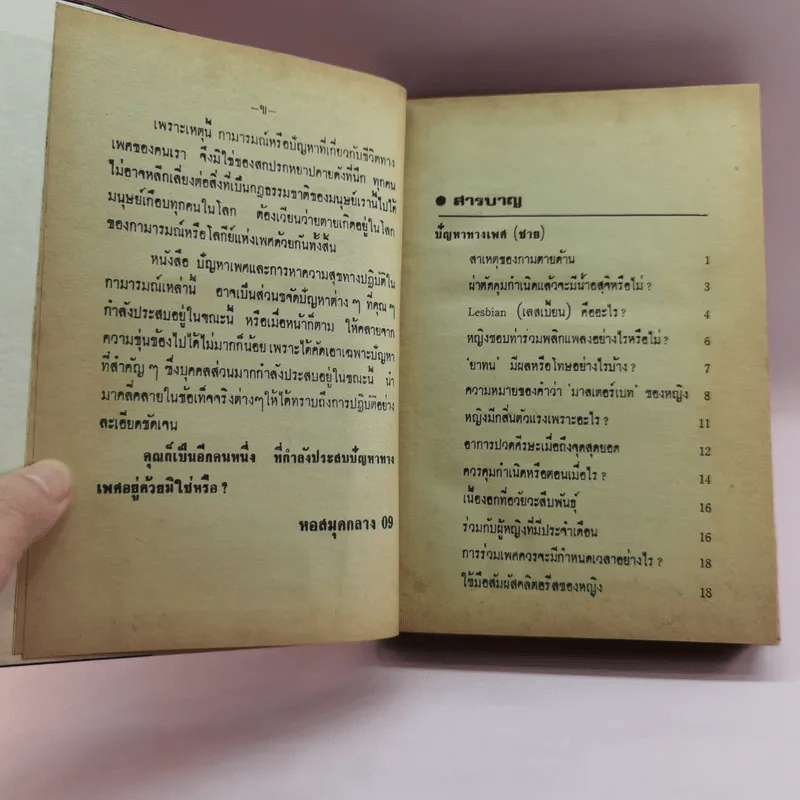 —ข—
เพราะเหตุนี้ กามารมณ์หรือปัญหาที่เกี่ยวกับชีวิตทาง
เพศของคนเรา จึงมิใช่ของสกปรกหยาบคายดังที่นึก ทุกคน
ไม่อาจหลีกเลี่ยงต่อสิ่งที่เป็นกฎธรรมชาติของมนุษย์เรานี้ไปได้
มนุษย์เกือบทุกคนในโลก ต้องเวียนว่ายตายเกิดอยู่ในโลก
ของกามารมณ์หรือโลกีย์แห่งเพศด้วยกันทั้งสิ้น
หนังสือ ปัญหาเพศและการหาความสุขทางปฏิบัติใน
กามารมณ์เหล่านี้ อาจเป็นส่วนขจัดปัญหาต่างๆ ที่คุณๆ
กำลังประสบอยู่ในขณะนี้ หรือเมื่อหน้าก็ตาม ให้คลายจาก
ความขุ่นข้องไปได้ไม่มากก็น้อย เพราะได้คัดเอาเฉพาะปัญหา
ที่สำคัญๆ ซึ่งบุคคลส่วนมากกำลังประสบอยู่ในขณะนี้ นำ
มาคลี่คลายในข้อเท็จจริงต่างๆให้ได้ทราบถึงการปฏิบัติอย่าง
ละเอียดชัดเจน
คุณก็เป็นอีกคนหนึ่ง ที่กำลังประสบปัญหาทาง
เพศอยู่ด้วยมิใช่หรือ ?
หอสมุดกลาง 09
● สารบาญ
ปัญหาทางเพศ (ชาย)
สาเหตุของกามตายด้าน 1
ผ่าตัดคุมกำเนิดแล้วจะมีน้ำอสุจิหรือไม่ ? 3
Lesbian (เลสเบี้ยน) คืออะไร ? 4
หญิงชอบท่าร่วมพลิกแพลงอย่างไรหรือไม่ ? 6
'ยาทน' มีผลหรือโทษอย่างไรบ้าง ? 7
ความหมายของคำว่า 'มาสเตอร์เบท' ของหญิง 8
หญิงมีกลิ่นตัวแรงเพราะอะไร ? 11
อาการปวดศีรษะเมื่อถึงจุดสุดยอด 12
ควรคุมกำเนิดหรือตอนเมื่อไร ? 14
เนื้องอกที่อวัยวะสืบพันธุ์ 16
ร่วมกับผู้หญิงที่มีประจำเดือน 16
การร่วมเพศควรจะมีกำหนดเวลาอย่างไร ? 18
ใช้มือสัมผัสคลิตอริสของหญิง 18